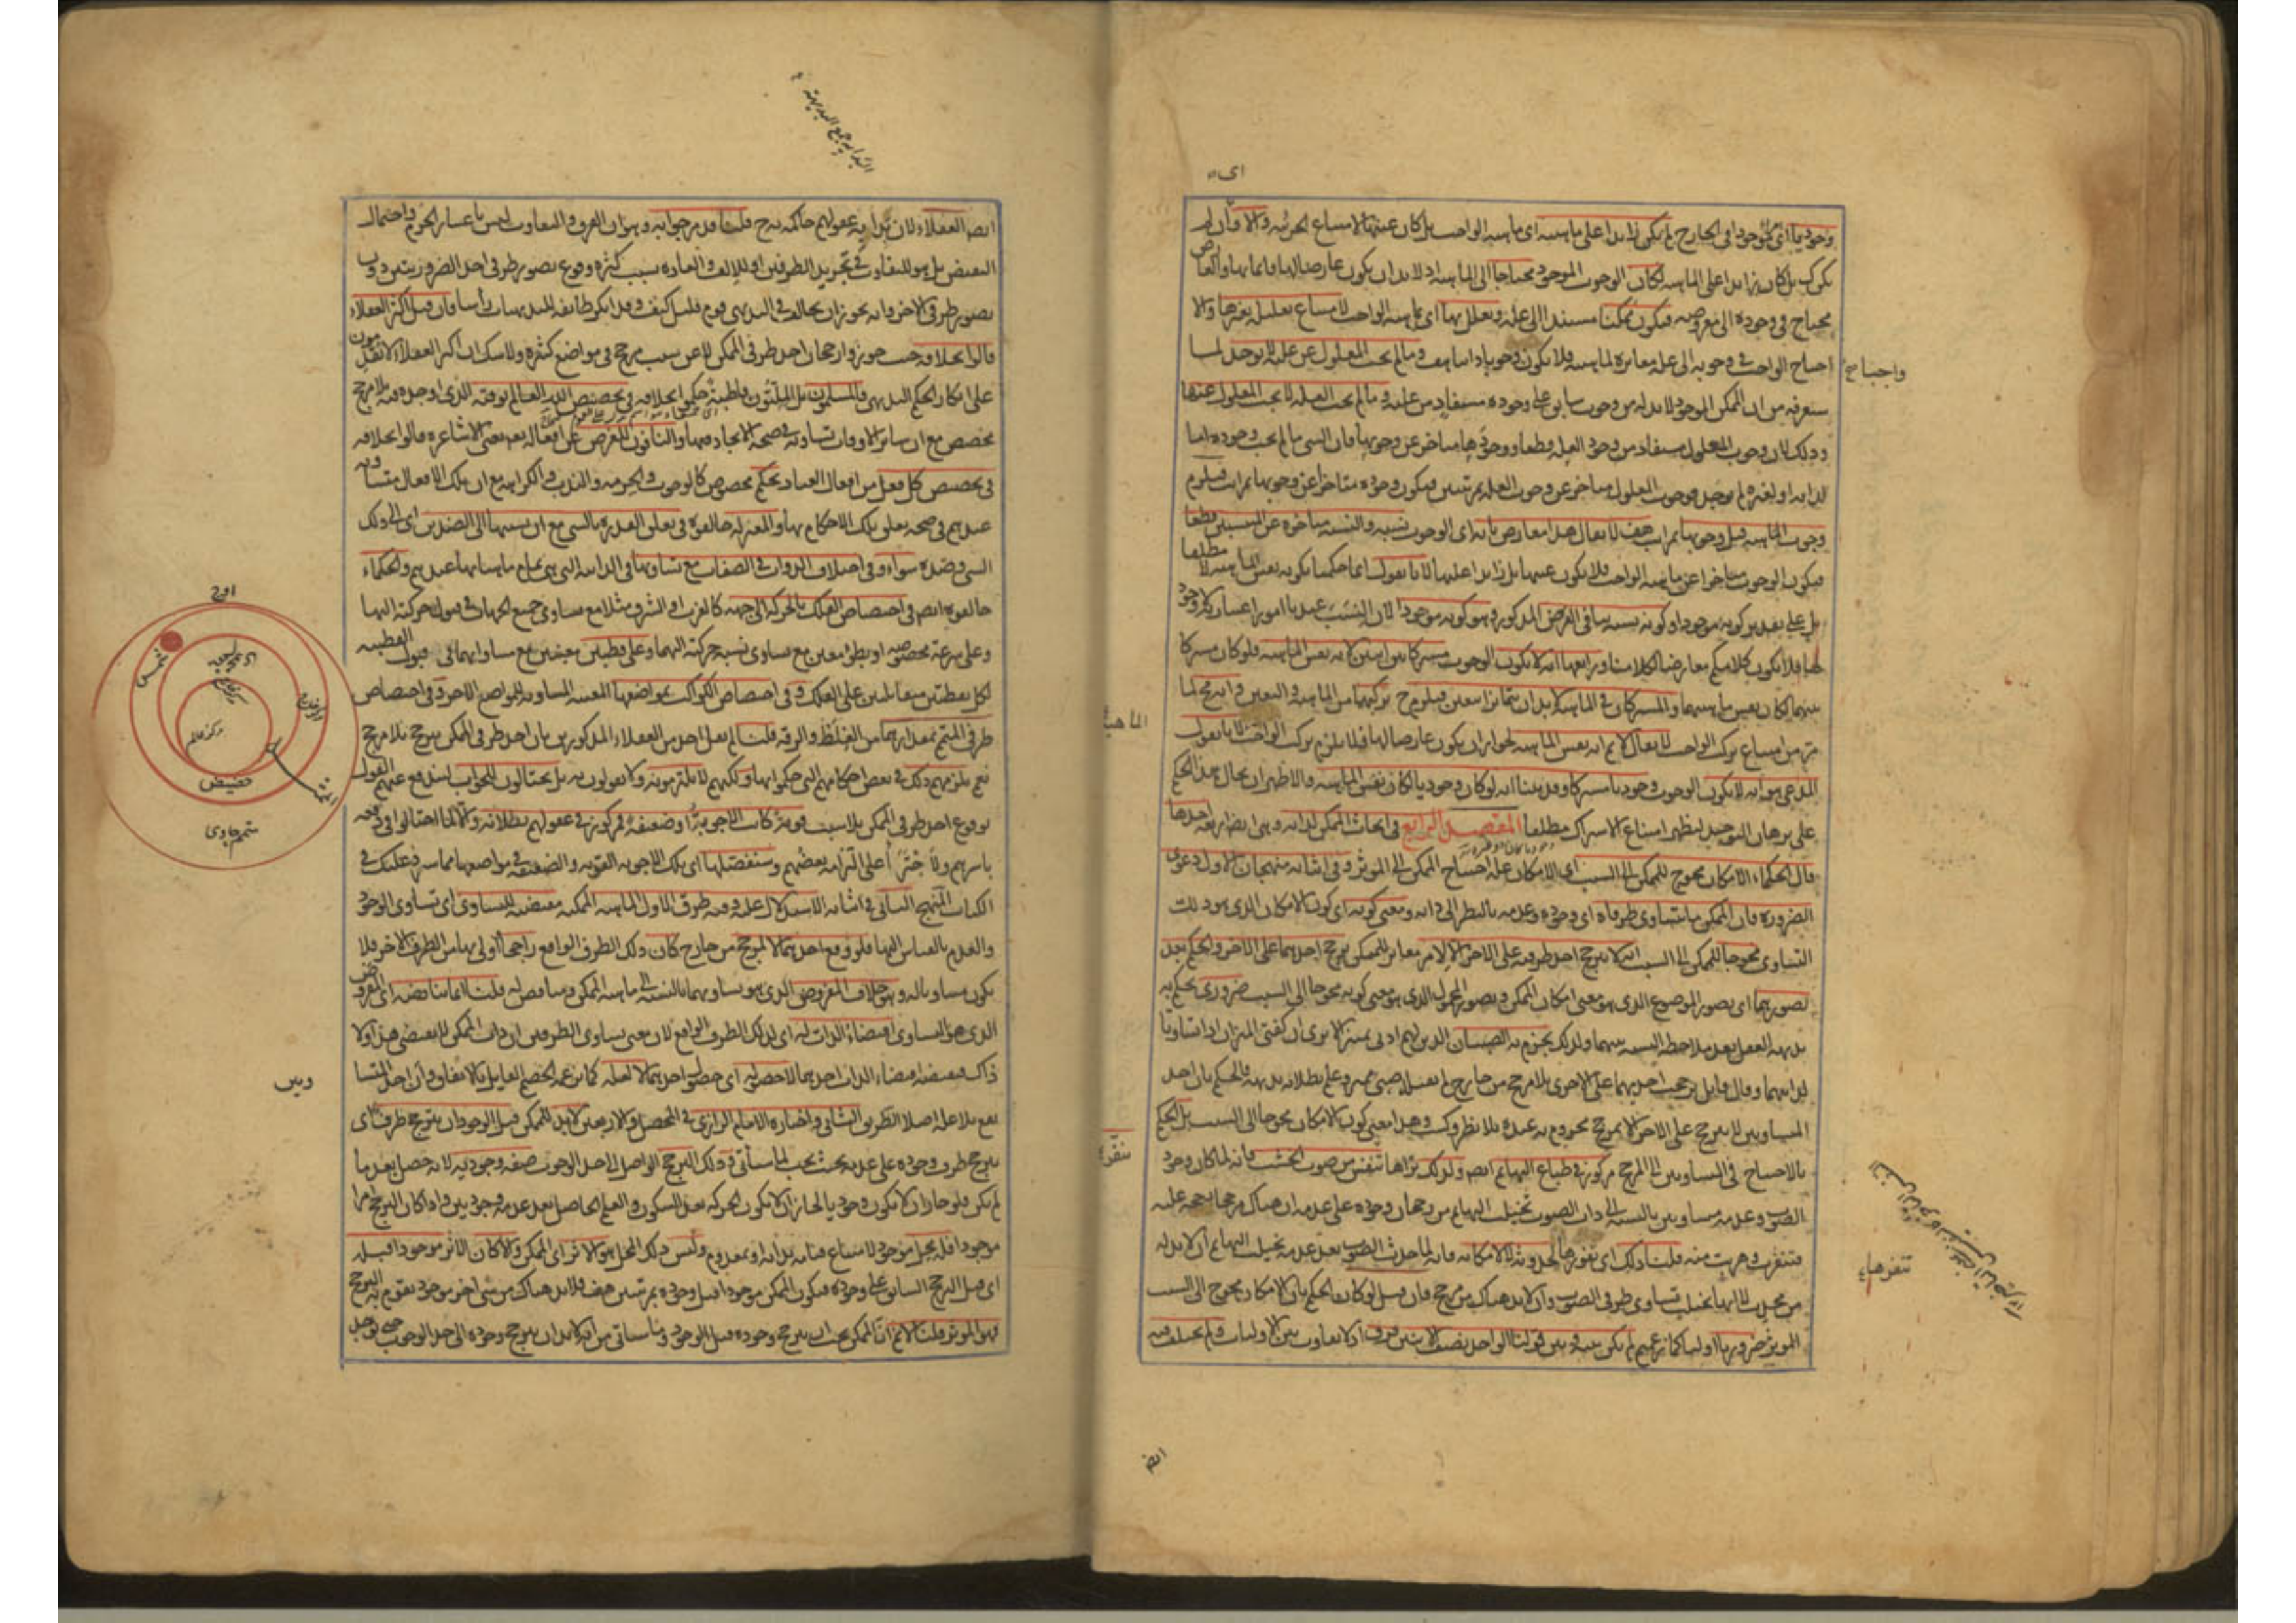 وجوديا اى موجودا فى الخارج لم يكن زايدا على ماهيته اى ماهية الواجب بل كان عينها لامتناع الجزئية والا اى وان لم
يكن كذلك بل كان زايدا على الماهية لكان الوجوب الموجود محتاجا الى الماهية اذ لابد ان يكون عارضا لها قايما بها والعارض
محتاج فى وجوده الى معروضه فيكون ممكنا مستندا الى علة ويعلل بها اى بماهية الواجب لامتناع تعليله بغيرها والا
احتاج الواجب فى وجوبه الى علة مغايرة لماهيته فلا يكون وجوبا ذاتيا هف وما لم يجب المعلول عن علته لا يوجد لما
واجبا صح
ستعرفه من ان الممكن الموجود لابد له من وجوب سابق على وجوده مستفاد من علته وما لم يجب العلة لا يجب المعلول عنها
وذلك لان وجوب المعلول مستفاد من وجود العلة قطعا ووجودها متاخر عن وجوبها فان الشى ما لم يجب وجوده اما
لذاته او لغيره لم يوجد فوجوب المعلول متاخر عن وجوب العلة بمرتبتين فيكون وجوده متاخرا عن وجوبها بمراتب فيلزم
وجوب الماهية قبل وجوبها بمراتب هف لا يقال هذا معارض بانه اى الوجوب نسبة والنسبة متاخرة عن المنتسبين قطعا
فيكون الوجوب متاخرا عن ماهية الواجب فلا يكون عينها بل زايدا عليها لانا نقول انما حكمنا بكونه نفس الماهية لا مطلقا
بل على تقدير كونه موجودا وكونه نسبة ينافى الفرض المذكور وهو كونه موجودا لان النسب عندنا امور اعتبارية لا وجود
لها فلا يكون كلامكم معارضا لكلامنا ورابعها انه لا يكون الوجوب مشتركا بين اثنين لانه نفس الماهية فلو كان مشتركا
بينهما لكان نفس ماهيتهما والمشتركان فى الماهية لابد ان يتمايزا بتعين فيلزم ح تركبهما من الماهية والتعين وانه مح لما
الماهية
مر من امتناع تركب الواجب لا يقال لا نم انه نفس الماهية لجواز ان يكون عارضا لها فلا يلزم تركب الواجب لانا نقول
المدعى هو انه لا يكون الوجوب وجوديا مشتركا وقد بينا انه لو كان وجوديا لكان نفس الماهية والاظهر ان يحال هذا الحكم
على برهان التوحيد ليظهر امتناع الاشتراك مطلقا المقصد الرابع فى ابحاث الممكن لذاته وهى ايضا اربعة احدها
قال الحكماء الامكان محوج للممكن الى السبب اى الامكان علة احتياج الممكن الى الموثر وفى اثباته منهجان الاول دعوى
الضرورة فان الممكن ما يتساوى طرفاه اى وجوده وعدمه بالنظر الى ذاته ومعنى كونه اى كون الامكان الذى هو ذلك
التساوى محوجا للممكن الى السبب انه لا يترجح احد طرفيه على الاخر الا لامر مغاير للممكن يرجح احدهما على الاخر والحكم بعد
تصورهما اى تصور الموضوع الذى هو معنى امكان الممكن وتصور المحمول الذى هو معنى كونه محوجا الى السبب ضرورى يحكم به
بديهة العقل بعد ملاحظة النسبة بينهما ولذلك يجزم به الصبيان الذين لهم ادنى تمييز الا يرى ان كفتى الميزان اذا تساوتا
لذاتيهما وقال قايل ترجحت احديهما على الاخرى بلا مرجح من خارج لم يقبله صبى مميز وعلم بطلانه بديهة فالحكم بان احد
المتساويين لا يترجح على الاخر الا بمرجح مجزوم به عنده بلا نظر وكسب وهذا معنى كون الامكان محوجا الى السبب بل الحكم
تنفر
بالاحتياج فى المتساويين الى المرجح مركوز فى طباع البهايم ايضا ولذلك تراها تنفر من صوت الخشب فانه لما كان وجود
الصوت وعدمه متساويين بالنسبة الى ذات الصوت تخيلت البهايم من رجحان وجوده على عدمه ان هناك مرجحا رجحه عليه
فتنفرت وهربت منه قلنا ذلك اى نفورها لحدوثه لا لامكانه فانه لما حدث الصوت بعد عدمه تخيلت البهايم ان لابد له
تنفرها
من محدث لا انها تخيلت تساوى طرفى الصوت وان لابد هناك من مرجح فان قيل لو كان الحكم بان الامكان محوج الى السبب
الموثر ضروريا اوليا كما زعمتم لم يكن بينه وبين قولنا الواحد نصف الاثنين فرق اذ لا تفاوت بين الاوليات ولم يختلف فيه
ايضا
ايضا العقلاء لان بداية عقولهم حاكمة به ح قلنا قد مر جوابه وهو ان الفرق والتفاوت ليس باعتبار الجزم واحتمال
النقيض بل هو للتفاوت فى تجريد الطرفين او للالف والعادة بسبب كثرة وقوع تصور طرفى احد الضروريين دون
تصور طرفى الاخر وانه يجوز ان يخالف فى البديهى قوم قليل كيف وقد انكر طائفة البديهيات رأسا فان قيل اكثر العقلاء
قالوا بخلافه حيث جوزوا رجحان احد طرفى الممكن لا عن سبب مرجح فى مواضع كثيرة ولا شك ان اكثر العقلاء لا يقدمون
على انكار الحكم البديهى فالمسلمون بل المليون قاطبة حكموا بخلافه فى تخصيص الله العالم بوقته الذى اوجده فيه بلا مرجح
مخصص مع ان ساير الاوقات تساويه فى صحة الايجاد فيها والنافون للغرض عن افعاله تعالى يعنى الاشاعرة قالوا بخلافه
فى تخصيص كل فعل من افعال العباد بحكم مخصوص كالوجوب والحرمة والندب والكراهة مع ان تلك الافعال متساوية
عندهم فى صحة تعلق تلك الاحكام بها والمعتزلة خالفوه فى تعلق القدرة بالشى مع ان نسبتها الى الضدين اى الى ذلك
الشى وضده سواء وفى اختلاف الذوات فى الصفات مع تساويها فى الذاتية التى هى تمام ماهياتها عندهم والحكماء
خالفوه ايضا فى اختصاص الفلك بالحركة الى جهة كالغرب او الشرق مثلا مع تساوى جميع الجهات فى قبول حركته اليها
وعلى سرعة مخصوصة او بطؤ معين مع تساوى نسبة حركته اليهما وعلى قطبين معينين مع مساواتهما فى قبول القطبية
لكل نقطتين متقابلتين على الفلك وفى اختصاص الكواكب بمواضعها المعينة المساوية للمواضع الاخر وفى اختصاص
طرفى المتمم بقدريهما من الغلظ والرقة قلنا لم يقل احد من العقلاء المذكورين بان احد طرفى الممكن يترجح بلا مرجح
نعم يلزمهم ذلك فى بعض احكامهم التى حكموا بها ولكنهم لا يلتزمونه ولا يقولون به بل يحتالون للجواب ليندفع عنهم القول
بوقوع احد طرفى الممكن بلا سبب
باسرهم
الكتاب المنهج الثانى فى اثباته الاستدلال عليه وفيه طرق الاول الماهية الممكنة مقتضية للتساوى اى تساوى الوجود
والعدم بالقياس اليها فلو وقع احدهما لا لمرجح من خارج كان ذلك الطرف الواقع راجحا اولى بها من الطرف الاخر فلا
يكون مساويا له وهو خلاف المفروض الذى هو تساويهما بالنسبة الى ماهية الممكن ومناقض له قلنا انما يناقضه اى المفروض
الذى هو التساوى اقتضاء الذات له اى لذلك الطرف الواقع لان معنى تساوى الطرفين ان ذات الممكن لا يقتضى هذا ولا
ذاك فيناقضه اقتضاء الذات احدهما لا حصوله اى حصول احدهما لا لعلة كما يزعمه الخصم القايل بالاتفاق وان احد المتساويين
يقع بلا علة اصلا الطريق الثانى واختاره الامام الرازى فى المحصل والاربعين لابد للممكن قبل الوجود ان يترجح طرفه اى
يترجح طرف وجوده على عدمه بحيث يجب لما سيأتى وذلك الترجح الواصل الى حد الوجوب صفة وجودية لانه حصل بعد ما
لم يكن فلو جاز ان لا يكون وجوديا لجاز ان لا يكون الحركة بعد السكون والعلم الحاصل بعد عدمه وجوديين واذا كان الترجح امرا
موجودا فله محل موجود لامتناع قيامه بذاته او بمعدوم وليس ذلك المحل هو الاثر اى الممكن والا كان الاثر موجودا قبله
اى قبل الترجح السابق على وجوده فيكون الممكن موجودا قبل وجوده بمرتبتين هف فلابد هناك من شى اخر موجود يقوم به الترجح
فهو الموثر قلنا لا نم ان الممكن يجب ان يترجح وجوده قبل الوجود وما سيأتى من انه لابد ان يترجح وجوده الى حد الوجوب حتى يوجد
اوج
شمس
مركز عالم
حضيض
متمم حاوى